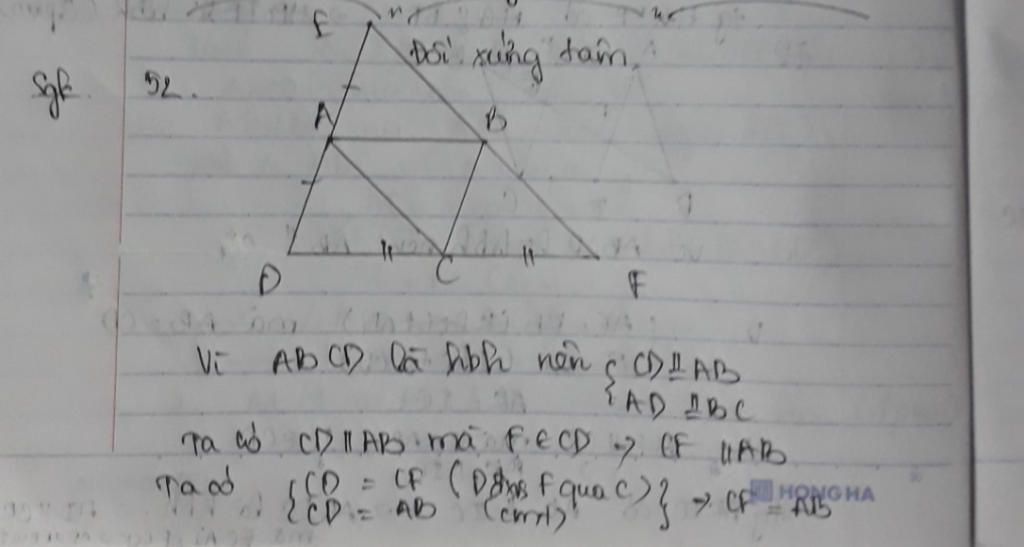 E
Đối xứng tâm
Sgk 52.
A B
D C F
Vì ABCD là hbh nên { CD ⫫ AB
AD ⫫ BC
Ta có CD || AB mà F ∈ CD → CF || AB
Ta có { CD = CF (D đx F qua C)
CD = AB (cmt) } → CF = AB
HONG HA